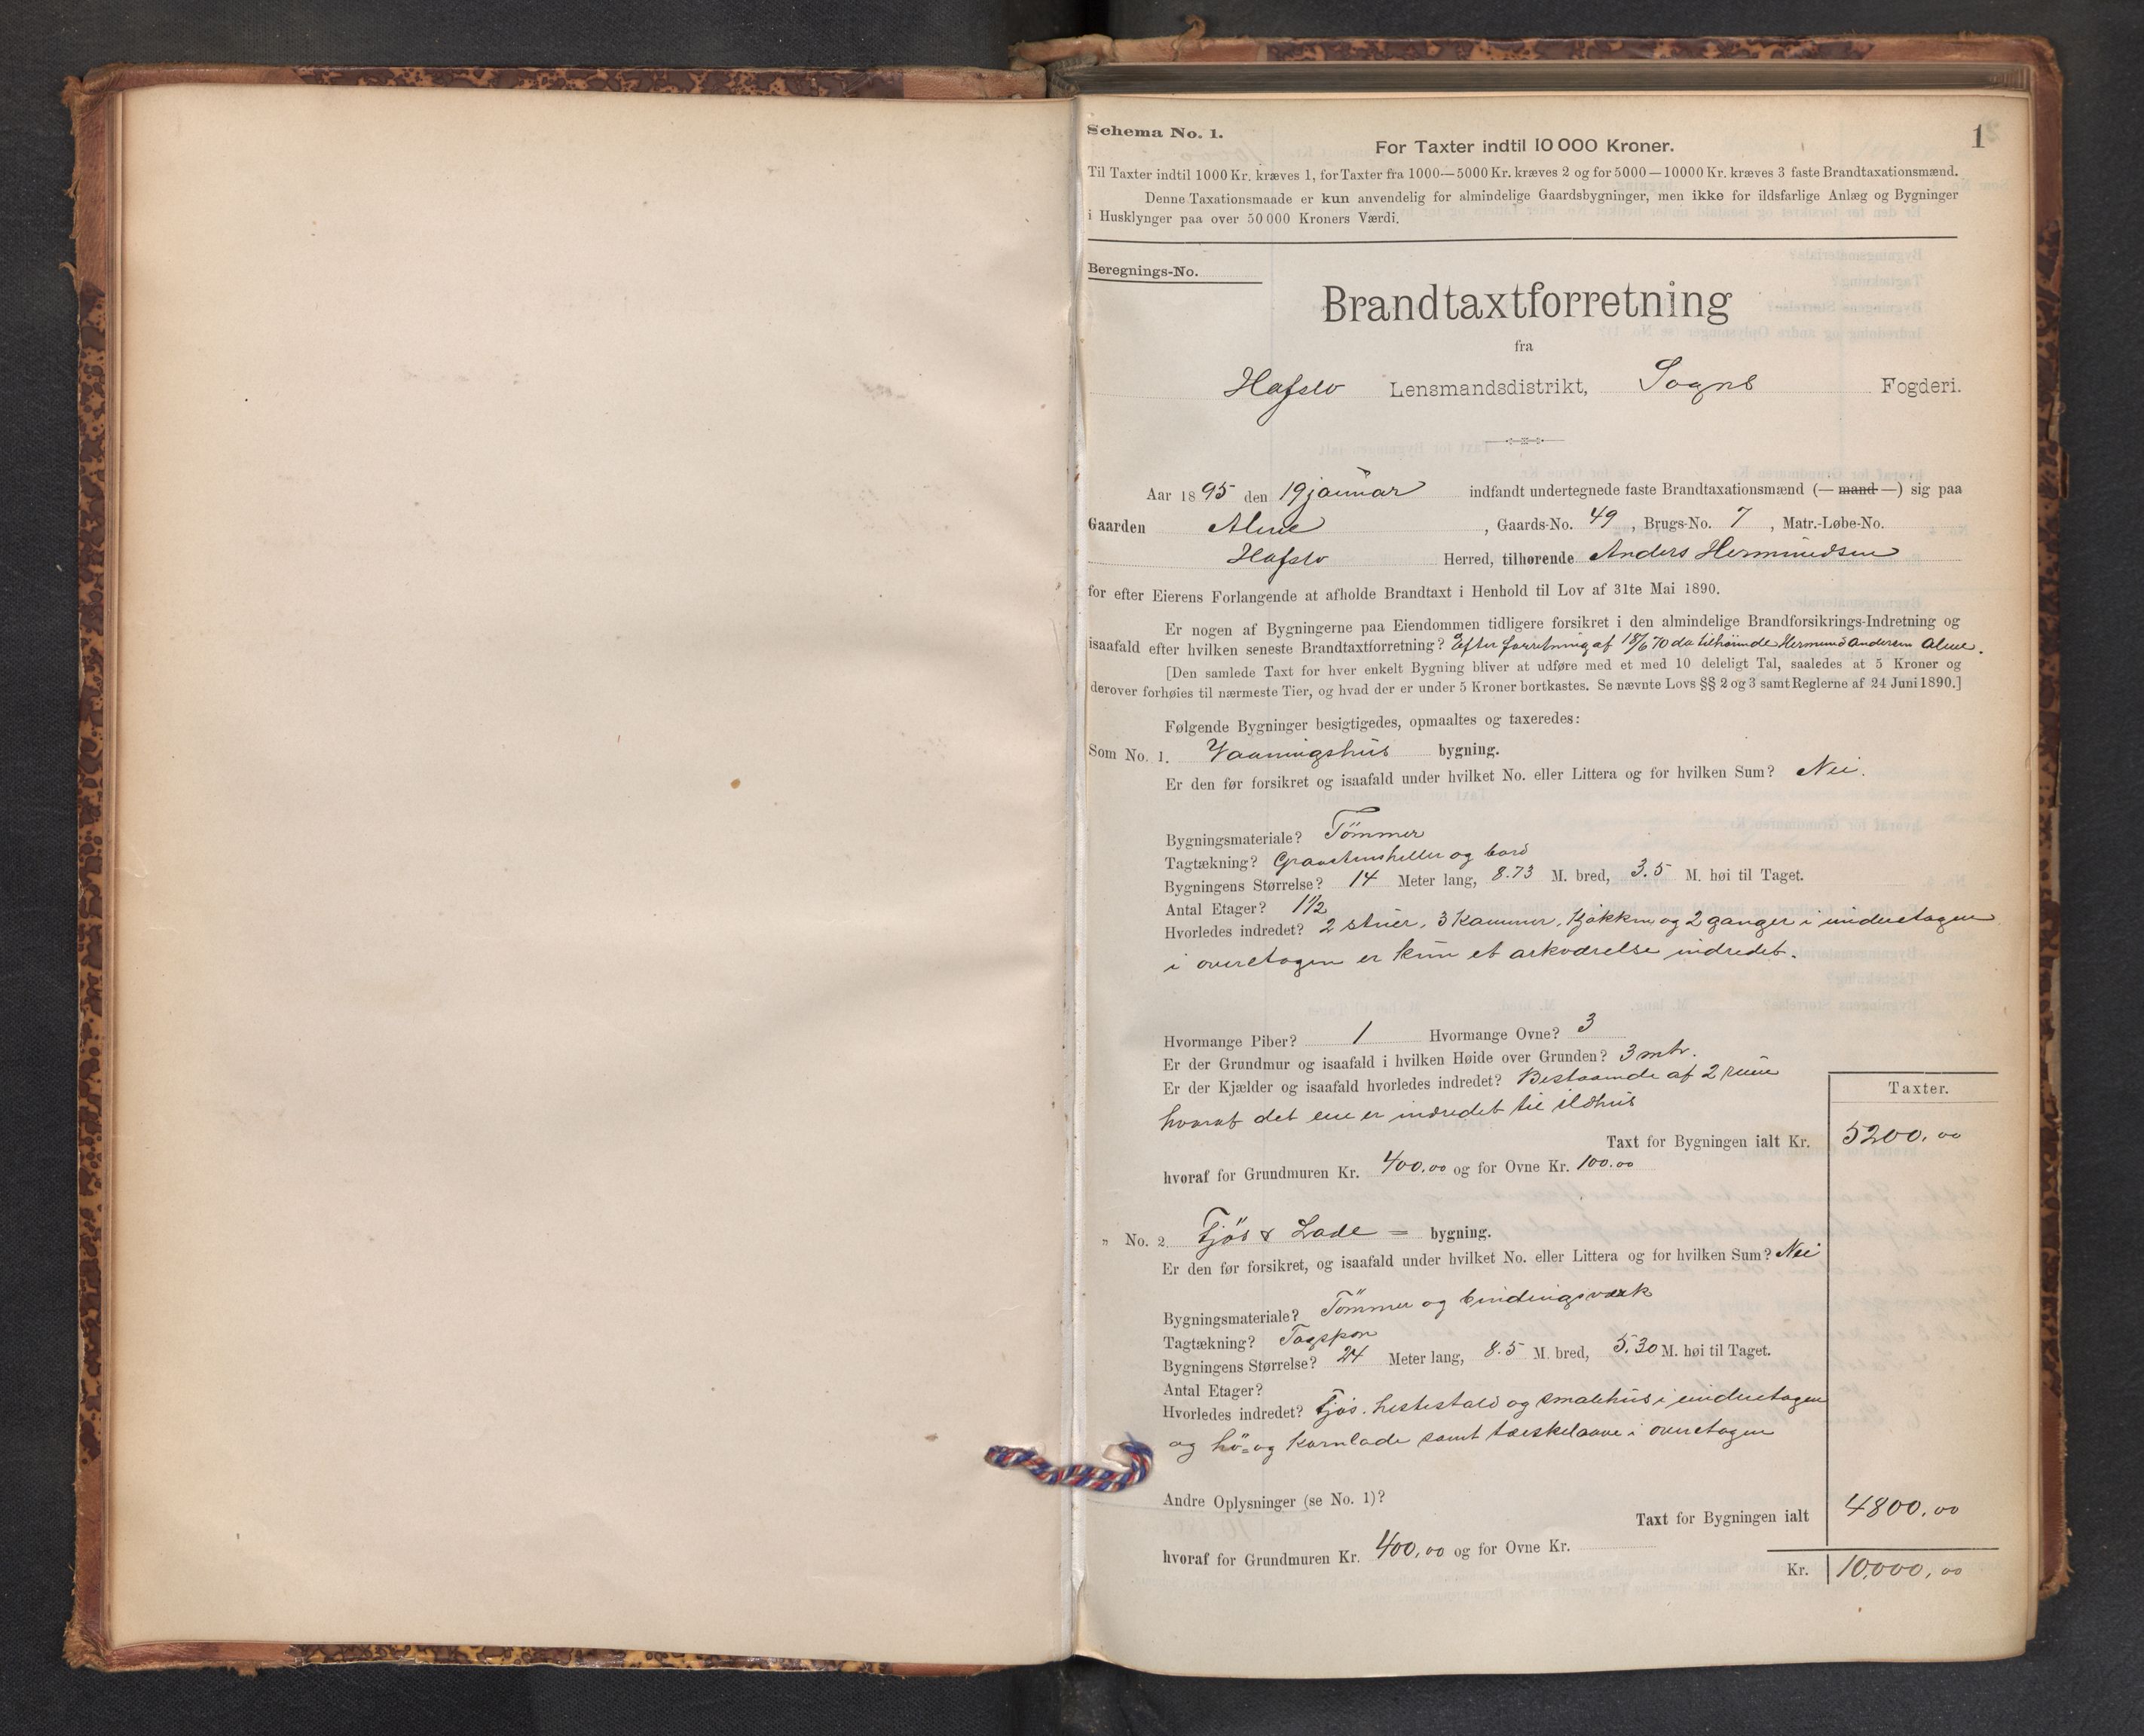 Schema No. 1.
1
For Taxter indtil 10 000 Kroner.
Til Taxter indtil 1000 Kr. kræves 1, for Taxter fra 1000—5000 Kr. kræves 2 og for 5000—10000 Kr. kræves 3 faste Brandtaxationsmænd.
Denne Taxationsmaade er kun anvendelig for almindelige Gaardsbygninger, men ikke for ildsfarlige Anlæg og Bygninger
i Husklynger paa over 50 000 Kroners Værdi.
Beregnings-No.
Brandtaxtforretning
fra
Hafslo Lensmandsdistrikt, Sogns Fogderi.
Aar 1895 den 19 januar indfandt undertegnede faste Brandtaxationsmænd (— mand —) sig paa
Gaarden Alme, Gaards-No. 49, Brugs-No. 7, Matr.-Løbe-No.
Hafslo Herred, tilhørende Anders Hermundsen
for efter Eierens Forlangende at afholde Brandtaxt i Henhold til Lov af 31te Mai 1890.
Er nogen af Bygningerne paa Eiendommen tidligere forsikret i den almindelige Brandforsikrings-Indretning og
isaafald efter hvilken seneste Brandtaxtforretning? Efter forretning af 18/6 70 da tilhørende Hermund Andersen Alme.
[Den samlede Taxt for hver enkelt Bygning bliver at udføre med et med 10 deleligt Tal, saaledes at 5 Kroner og
derover forhøies til nærmeste Tier, og hvad der er under 5 Kroner bortkastes. Se nævnte Lovs §§ 2 og 3 samt Reglerne af 24 Juni 1890.]
Følgende Bygninger besigtigedes, opmaaltes og taxeredes:
Som No. 1. Vaaningshus bygning.
Er den før forsikret og isaafald under hvilket No. eller Littera og for hvilken Sum? Nei.
Bygningsmateriale? Tömmer
Tagtækning? Graastensheller og bord
Bygningens Størrelse? 14 Meter lang, 8.73 M. bred, 3.5 M. høi til Taget.
Antal Etager? 1 1/2
Hvorledes indredet? 2 stuer, 3 kammer, kjøkken og 2 ganger i underetagen
i overetagen er kun et arkværelse indredet.
Hvormange Piber? 1 Hvormange Ovne? 3
Er der Grundmur og isaafald i hvilken Høide over Grunden? 3 mtr.
Er der Kjælder og isaafald hvorledes indredet? Bestaaende af 2 rum
hvoraf det ene er indredet til ildhus
Taxter.
Taxt for Bygningen ialt Kr. 5200,00
hvoraf for Grundmuren Kr. 400.00 og for Ovne Kr. 100.00
" No. 2. Fjös & Lade = bygning.
Er den før forsikret, og isaafald under hvilket No. eller Littera og for hvilken Sum? Nei
Bygningsmateriale? Tömmer og bindingsværk
Tagtækning? Tagspon
Bygningens Størrelse? 24 Meter lang, 8.5 M. bred, 5.30 M. høi til Taget.
Antal Etager?
Hvorledes indredet? Fjøs, hestestald og smalehus i underetagen
og hö= og kornlade samt tærskelaave i overetagen
Andre Oplysninger (se No. 1)?
Taxt for Bygningen ialt 4800,00
hvoraf for Grundmuren Kr. 400,00 og for Ovne Kr.
Kr. 10,000,00